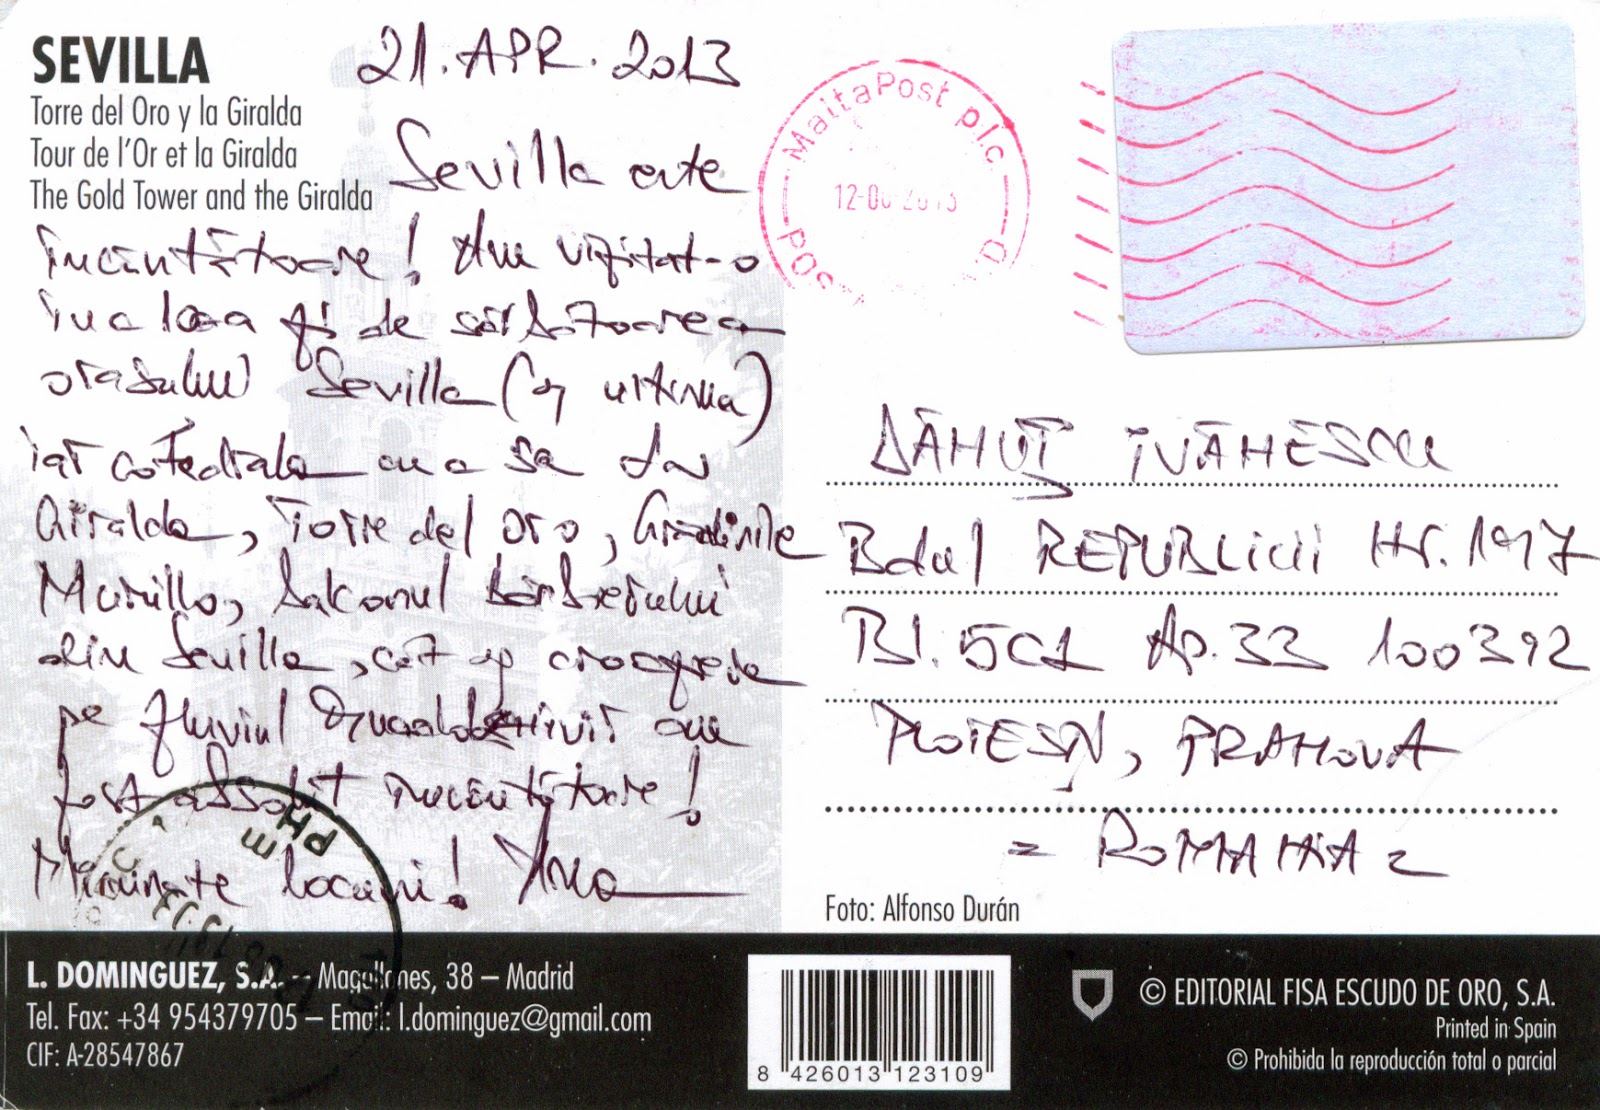 SEVILLA
Torre del Oro y la Giralda
Tour de l'Or et la Giralda
The Gold Tower and the Giralda
21.APR.2013
Sevilla este
încântătoare! Am vizitat-o
în a 10a zi de sărbătoarea
orașului Sevilla (și ultima)
iar catedrala cu a sa
Giralda, Torre del Oro, Grădinile
Murillo, Balconul Bărbierului
din Sevilla, cât și croaziera
pe fluviul Guadalchivir au
fost absolut încântătoare!
Minunate locuri! Ana
MaltaPost p.l.c
12-06-2013
DĂNUȚ IVĂNESCU
Bdul REPUBLICII Nr. 197
Bl. 5C1 Ap. 33 100392
PLOIEȘTI, PRAHOVA
= ROMANIA =
Foto: Alfonso Durán
PH
L. DOMINGUEZ, S.A. – Magallanes, 38 – Madrid
Tel. Fax: +34 954379705 – Email: l.dominguez@gmail.com
CIF: A-28547867
8 426013 123109
© EDITORIAL FISA ESCUDO DE ORO, S.A.
Printed in Spain
© Prohibida la reproducción total o parcial